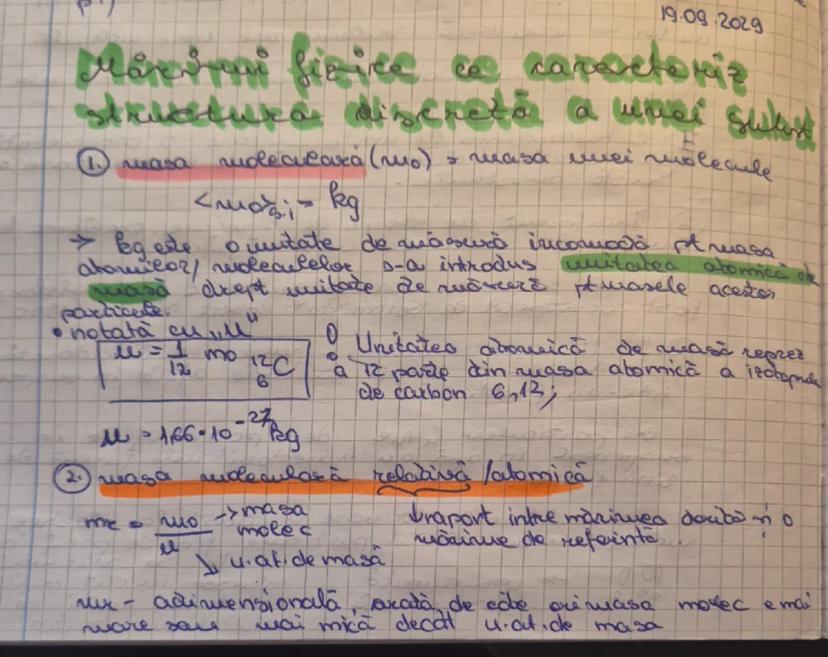 19.09.2029
Mărimi fizice ce caracteriz
structura discretă a unei subst
1. masa moleculară (mo) = masa unei molecule
<mo>S.i = kg
→ kg este o unitate de măsură incomodă pt masa
atomilor/moleculelor s-a introdus unitatea atomică de
masă drept unitate de măsură pt masele acestor
particule.
• notată cu „u"
u = 1/12 mo 12 6 C
Unitatea atomică de masă reprez
a 12 parte din masa atomică a izotopului
de carbon 6,12;
u = 1,66·10^-27 kg
2. masa moleculară relativă /atomică
mr = mo/u → masa molec
↘ u.at.de masă
raport între mărimea dorită și o
mărime de referință.
mr - adimensională, arată de câte ori masa molec e mai
mare sau mai mică decât u.at.de masa